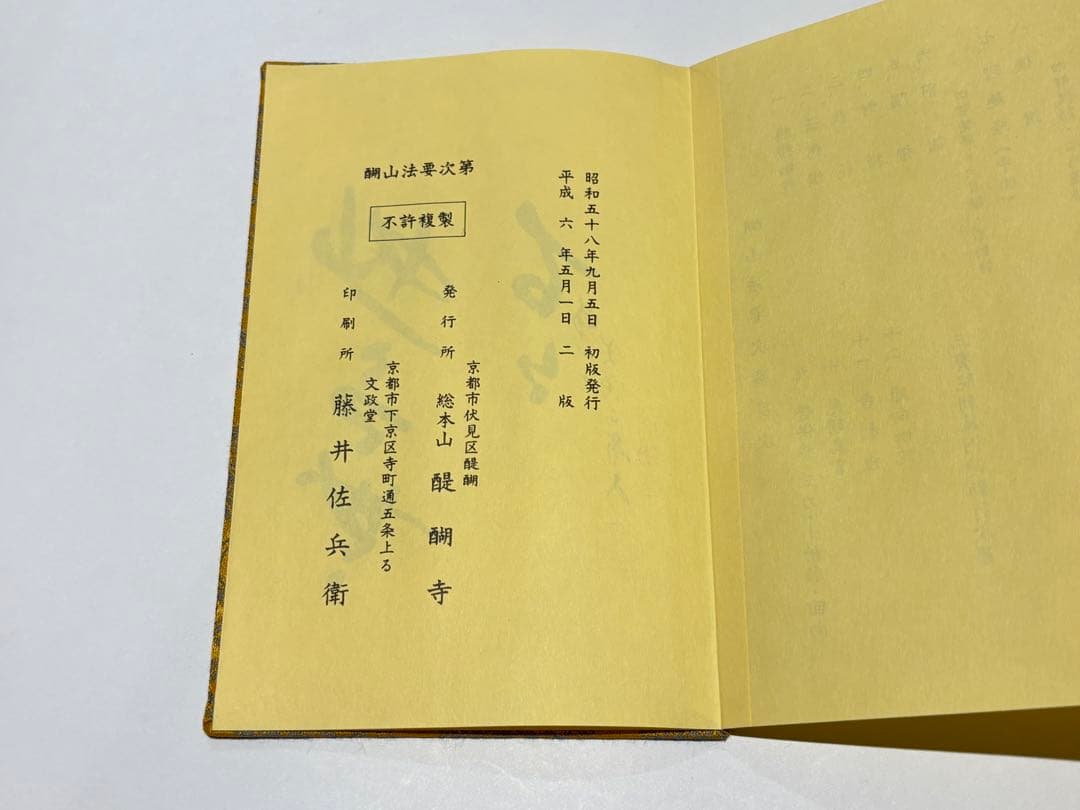 昭和五十八年九月五日 初版発行
平成 六 年五月一日 二 版
醐山法要次第
不許複製
京都市伏見区醍醐
発行所 総本山 醍醐寺
京都市下京区寺町通五条上る
文政堂
印刷所 藤井佐兵衛